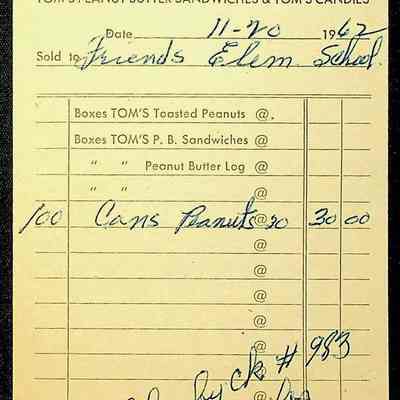 TOM'S PEANUT BUTTER SANDWICHES & TOM'S CANDIES
Date 11-20 1962
Sold to Friends Elem. School.
Boxes TOM'S Toasted Peanuts @.
Boxes TOM'S P. B. Sandwiches @
" " Peanut Butter Log @
" " @
100 Cans Peanuts @ 30 30 00
@
@
@
@
@
by ck # 983
@